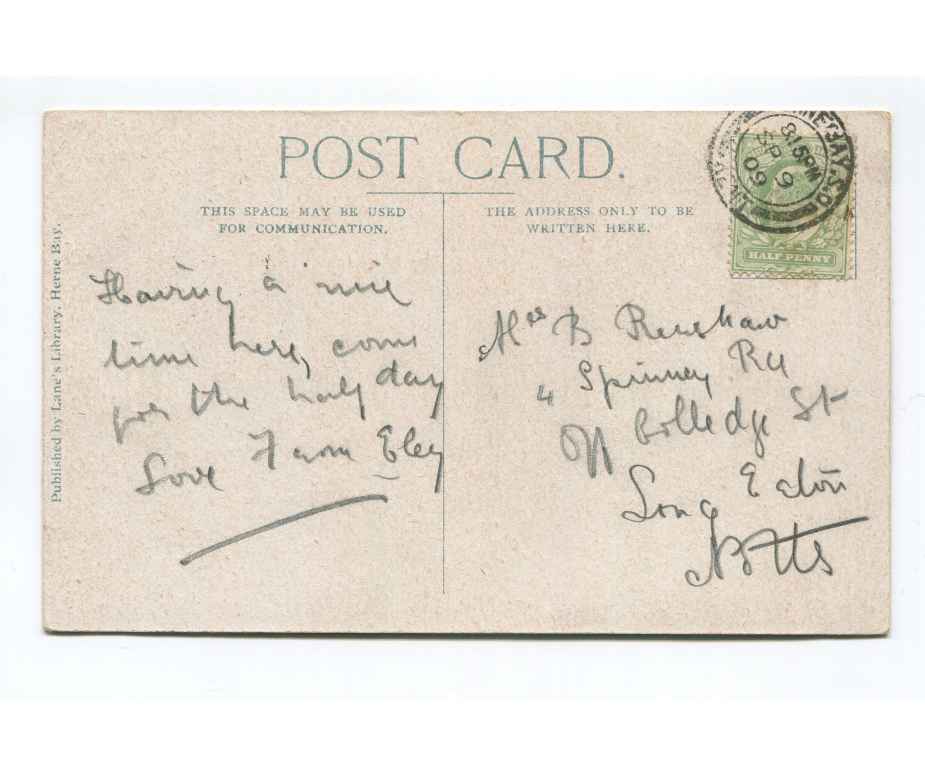 POST CARD.
THIS SPACE MAY BE USED
FOR COMMUNICATION.
THE ADDRESS ONLY TO BE
WRITTEN HERE.
Published by Lane's Library, Herne Bay.
HERNE BAY. S.O.
8 15 PM
SP 9
09
HALF PENNY
Having a nice
time here, come
for the half day
Love From Eley
Mrs B Renshaw
4 Spinney Rd
Off Colledge St
Long Eaton
Notts